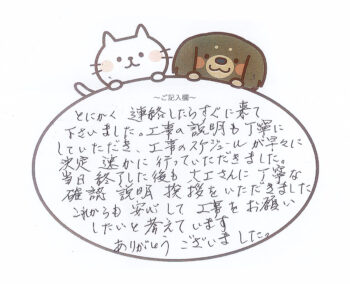 ～ご記入欄～
とにかく 連絡したらすぐに来て
下さいました。工事の説明も丁寧に
していただき、工事のスケジュールが早々に
決定 速かに行っていただきました。
当日 終了した後も 大工さんに丁寧な
確認 説明 挨拶をいただきました
これからも 安心して 工事をお願い
したいと考えています
ありがとうございました。